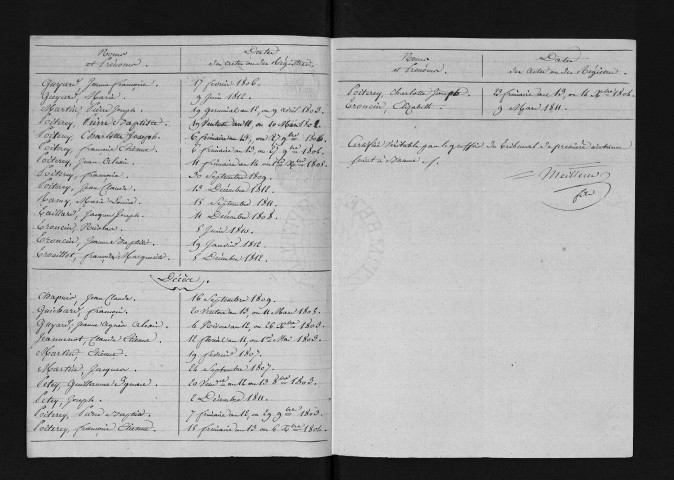 Noms et Prénoms. Dates des actes ou des Registres.
Guyard, Jeanne françoise 17 février 1806.
Guyard, Marie 9 Juin 1812.
Martin, Pierre Joseph 19 germinal an 11, ou 9 avril 1803.
Poiterey, Pierre Baptiste 19 Ventose an 10 ou 10 Mars 1802.
Poiterey, Charlotte Joseph 6 frimaire an 13, ou 27 9bre 1804.
Poiterey, françois Etienne 6 frimaire an 13, ou 27 9bre 1804.
Poiterey, Jean Alexis 11 frimaire an 14 ou 2 Xbre 1805.
Poiterey, françoise 30 Septembre 1809.
Poiterey, Jean Claude 13 Décembre 1812.
Ramy, Marie Louise 15 Septembre 1811.
Taillard, Jacques Joseph 11 Décembre 1808.
Troncin, Nicolas 5 Juin 1810.
Troncin, Jeanne Baptiste 19 Janvier 1812.
Trouillot, françoise Marguerite 5 Décembre 1812.
Décès.
Chapuis, Jean Claude 16 Septembre 1809.
Guichard, françois 20 Ventose an 13, ou 11 Mars 1805.
Guyard, Jeanne Agnès Alexis 6 Nivose an 12, ou 28 Xbre 1803.
Jeannenot, Claude Etienne 12 floréal an 11, ou 1er Mai 1803.
Martin, Etienne 19 février 1807.
Martin, Jacques 24 Septembre 1807.
Petey, Guillaume Ignace 20 Vendre an 12 ou 13 8bre 1803.
Petey, Joseph 2 Décembre 1811.
Poiterey, Pierre Baptiste 7 frimaire an 12, ou 29 9bre 1803.
Poiterey, françois Etienne 15 frimaire an 13 ou 6 Xbre 1804.
Noms et Prénoms. Dates des actes ou des Registres.
Poiterey, Charlotte Joseph 23 frimaire an 13, ou 14 Xbre 1804.
Troncin, Elizabeth 9 Mars 1811.
Certifié Véritable par le greffier du tribunal de première instance
séant à Baume
Meilleur
fils